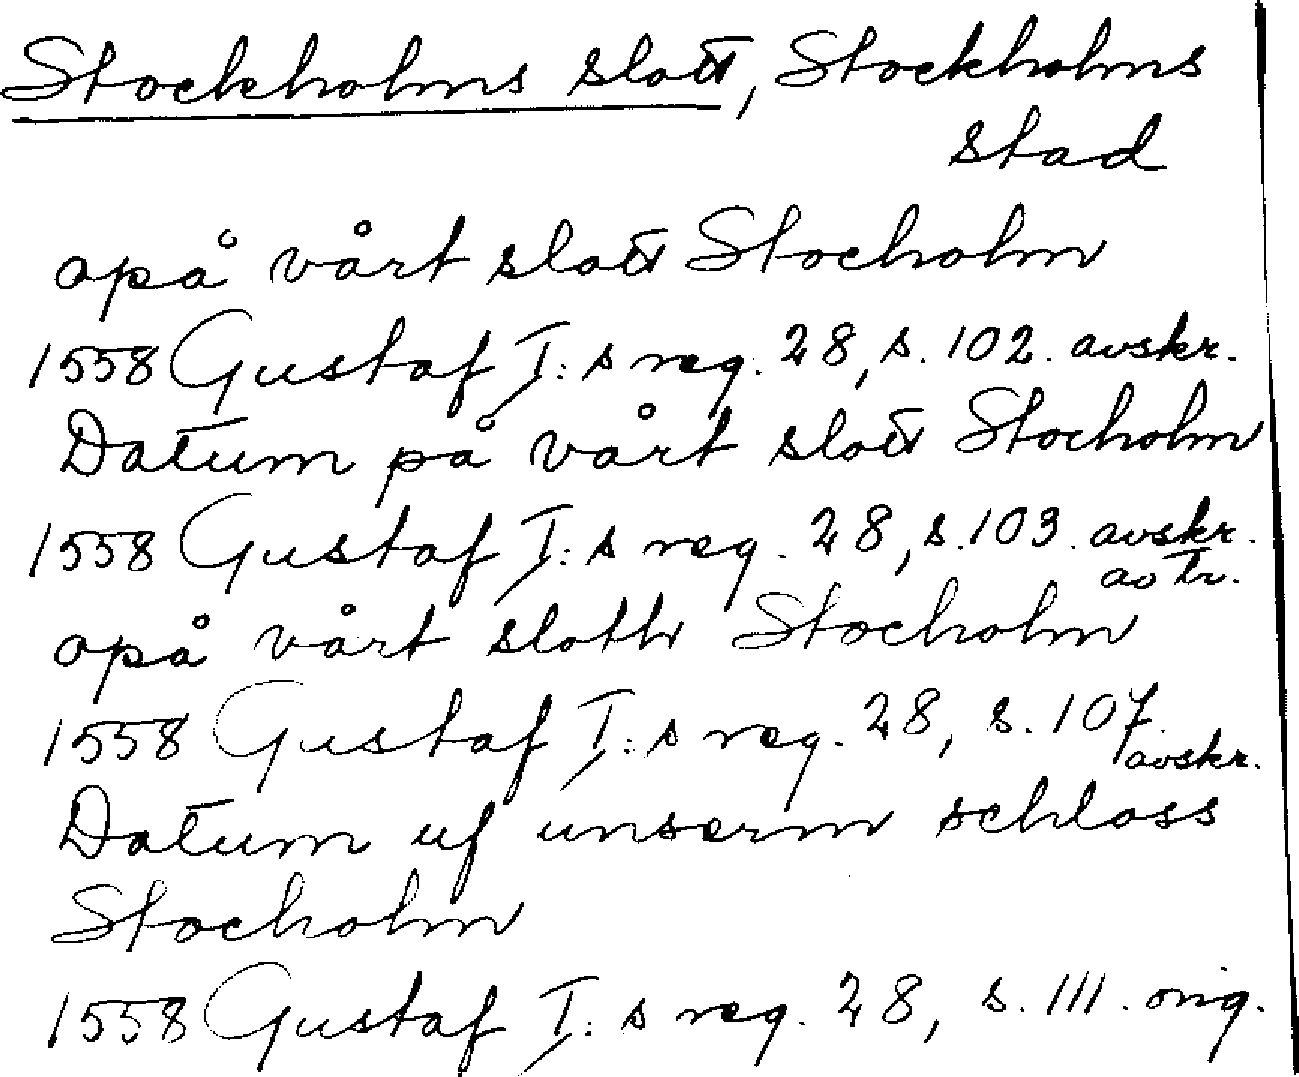 Stockholms slott, Stockholms
stad
opå vårt slott Stocholm
1558 Gustaf I:s reg. 28, s. 102. avskr.
Datum på vårt slott Stocholm
1558 Gustaf I:s reg. 28, s. 103. avskr.
av tr.
opå vårt sloth Stocholm
1558 Gustaf I:s reg. 28, s. 107.
avskr.
Datum uf unserm schloss
Stocholm
1558 Gustaf I:s reg. 28, s. 111. orig.